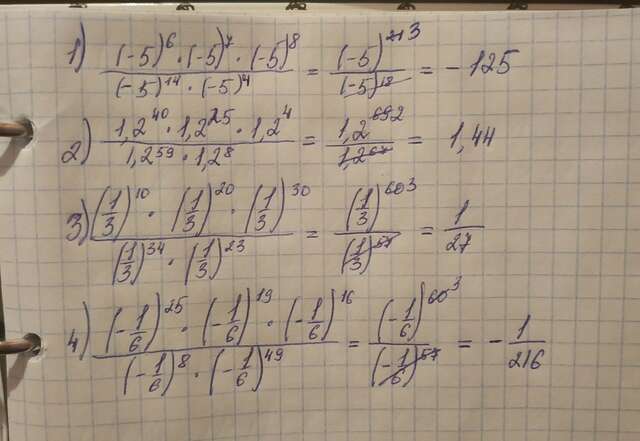 1) (-5)^6 · (-5)^7 · (-5)^8 / (-5)^14 · (-5)^4 = (-5)^21 3 / (-5)^18 = -125
2) 1,2^40 · 1,2^25 · 1,2^4 / 1,2^59 · 1,2^8 = 1,2^69 2 / 1,2^67 = 1,44
3) (1/3)^10 · (1/3)^20 · (1/3)^30 / (1/3)^34 · (1/3)^23 = (1/3)^60 3 / (1/3)^57 = 1/27
4) (-1/6)^25 · (-1/6)^19 · (-1/6)^16 / (-1/6)^8 · (-1/6)^49 = (-1/6)^60 3 / (-1/6)^57 = -1/216